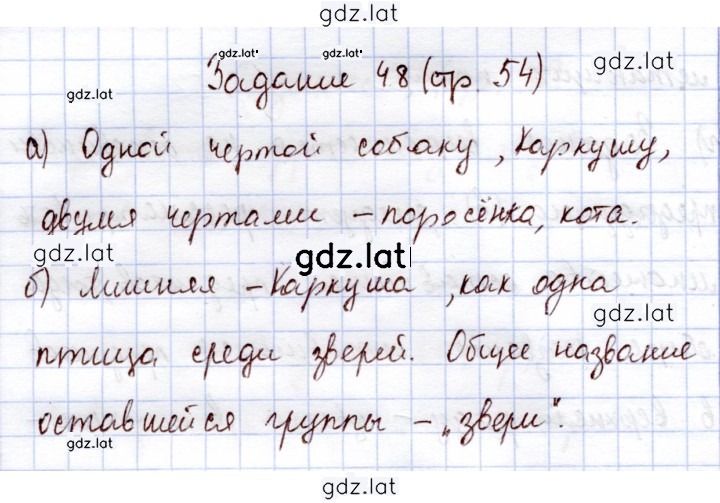 gdz.lat
gdz.lat gdz.lat
Задание 48 (стр. 54)
gdz.lat
gdz.lat
а) Одной чертой собаку, Каркушу,
двумя чертами – поросёнка, кота.
gdz.lat
gdz.lat
б) Лишняя – Каркуша, как одна
gdz.lat
птица среди зверей. Общее название
оставшейся группы – „звери“.
gdz.lat
gdz.lat